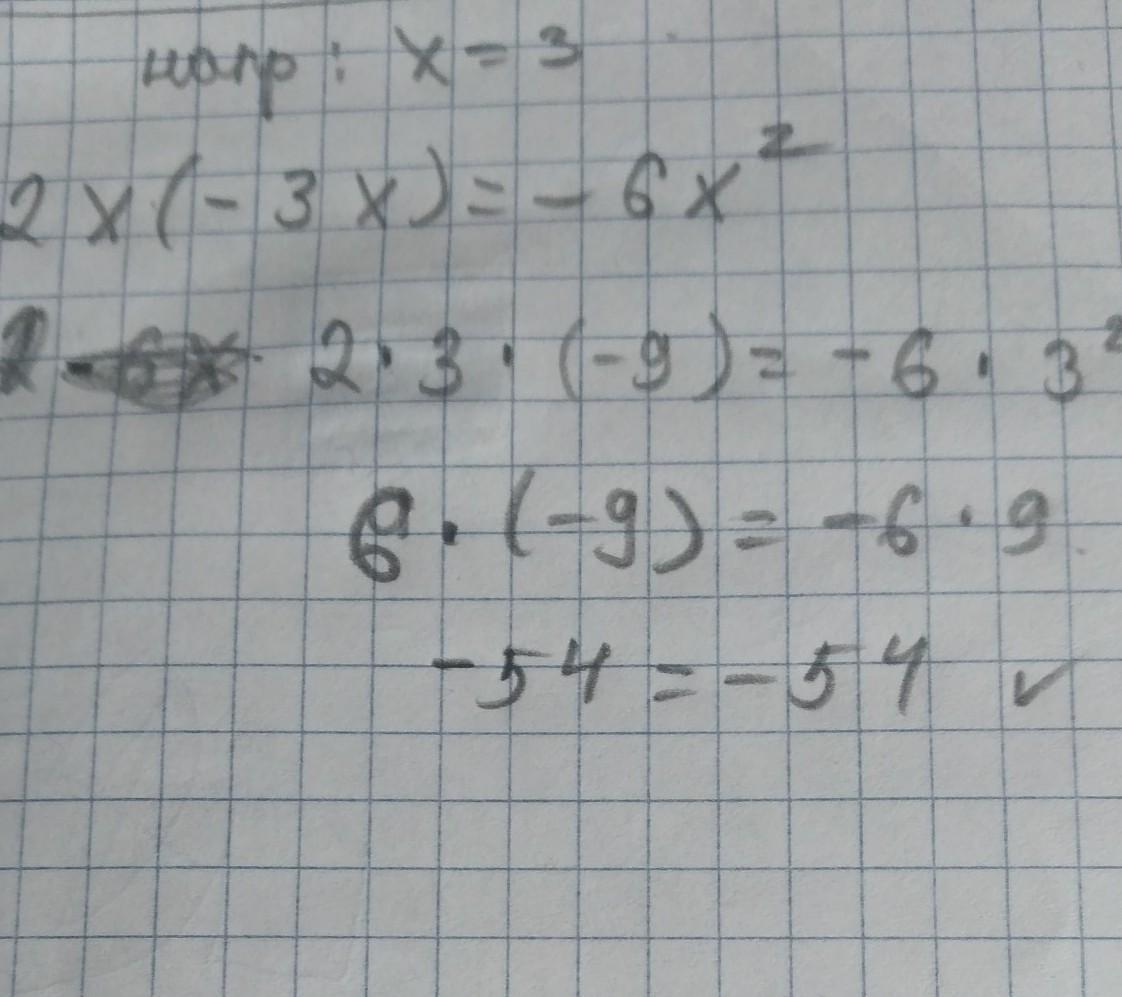 напр: x = 3
2x(-3x) = -6x²
2 · 3 · (-9) = -6 · 3²
6 · (-9) = -6 · 9
-54 = -54 ✓